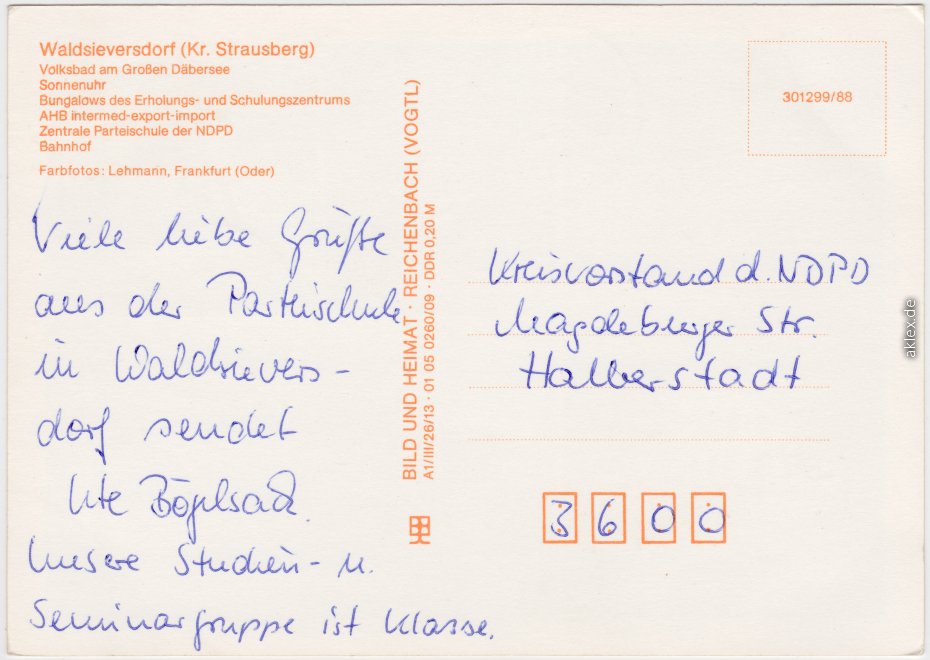 Waldsieversdorf (Kr. Strausberg)
Volksbad am Großen Däbersee
Sonnenuhr
Bungalows des Erholungs- und Schulungszentrums
AHB intermed-export-import
Zentrale Parteischule der NDPD
Bahnhof
Farbfotos: Lehmann, Frankfurt (Oder)
Viele liebe Grüße
aus der Parteischule
in Waldsievers-
dorf sendet
Ute
Unsere Studien- u.
Seminargruppe ist Klasse.
BILD UND HEIMAT · REICHENBACH (VOGTL)
A1/III/26/13 · 01 05 0260/09 · DDR 0,20 M
301299/88
Kreisvorstand d. NDPD
Magdeburger Str.
Halberstadt
3600
aklex.de